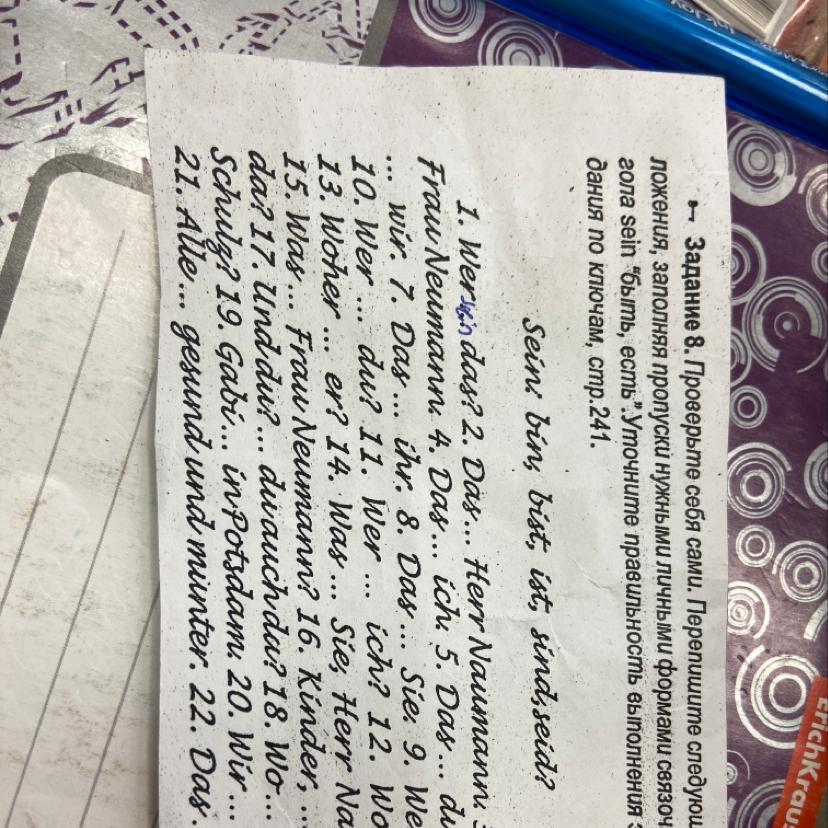 Задание 8. Проверьте себя сами. Перепишите следующ
ложения, заполняя пропуски нужными личными формами связоч
гола sein "быть, есть". Уточните правильность выполнения з
дания по ключам, стр.241.
Sein: bin, bist, ist, sind, seid?
1. Wer das? 2. Das ... Herr Naumann. 3
Frau Neumann. 4. Das ... ich. 5. Das ... du
... wir. 7. Das ... ihr. 8. Das ... Sie. 9. We
10. Wer ... du? 11. Wer ... ich? 12. Wo
13. Woher ... er? 14. Was ... Sie, Herr Na
15. Was ... Frau Neumann? 16. Kinder, ...
da? 17. Und du? ... du auch da? 18. Wo ...
Schulz? 19. Gabi ... in Potsdam. 20. Wir ...
21. Alle ... gesund und munter. 22. Das.
InkJoy
ErichKrau